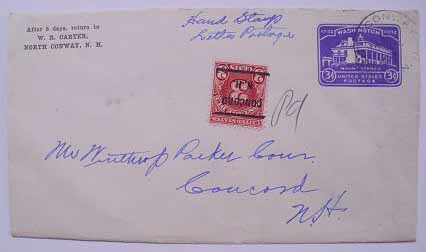 After 5 days, return to
W. R. CARTER,
NORTH CONWAY, N. H.
Hand Stamp
Letter Package
1732 WASHINGTON 1932
MOUNT VERNON
3¢ UNITED STATES 3¢
POSTAGE
CONCORD
N.H.
Pd
Mr Winthrop Parker
Concord
N.H.